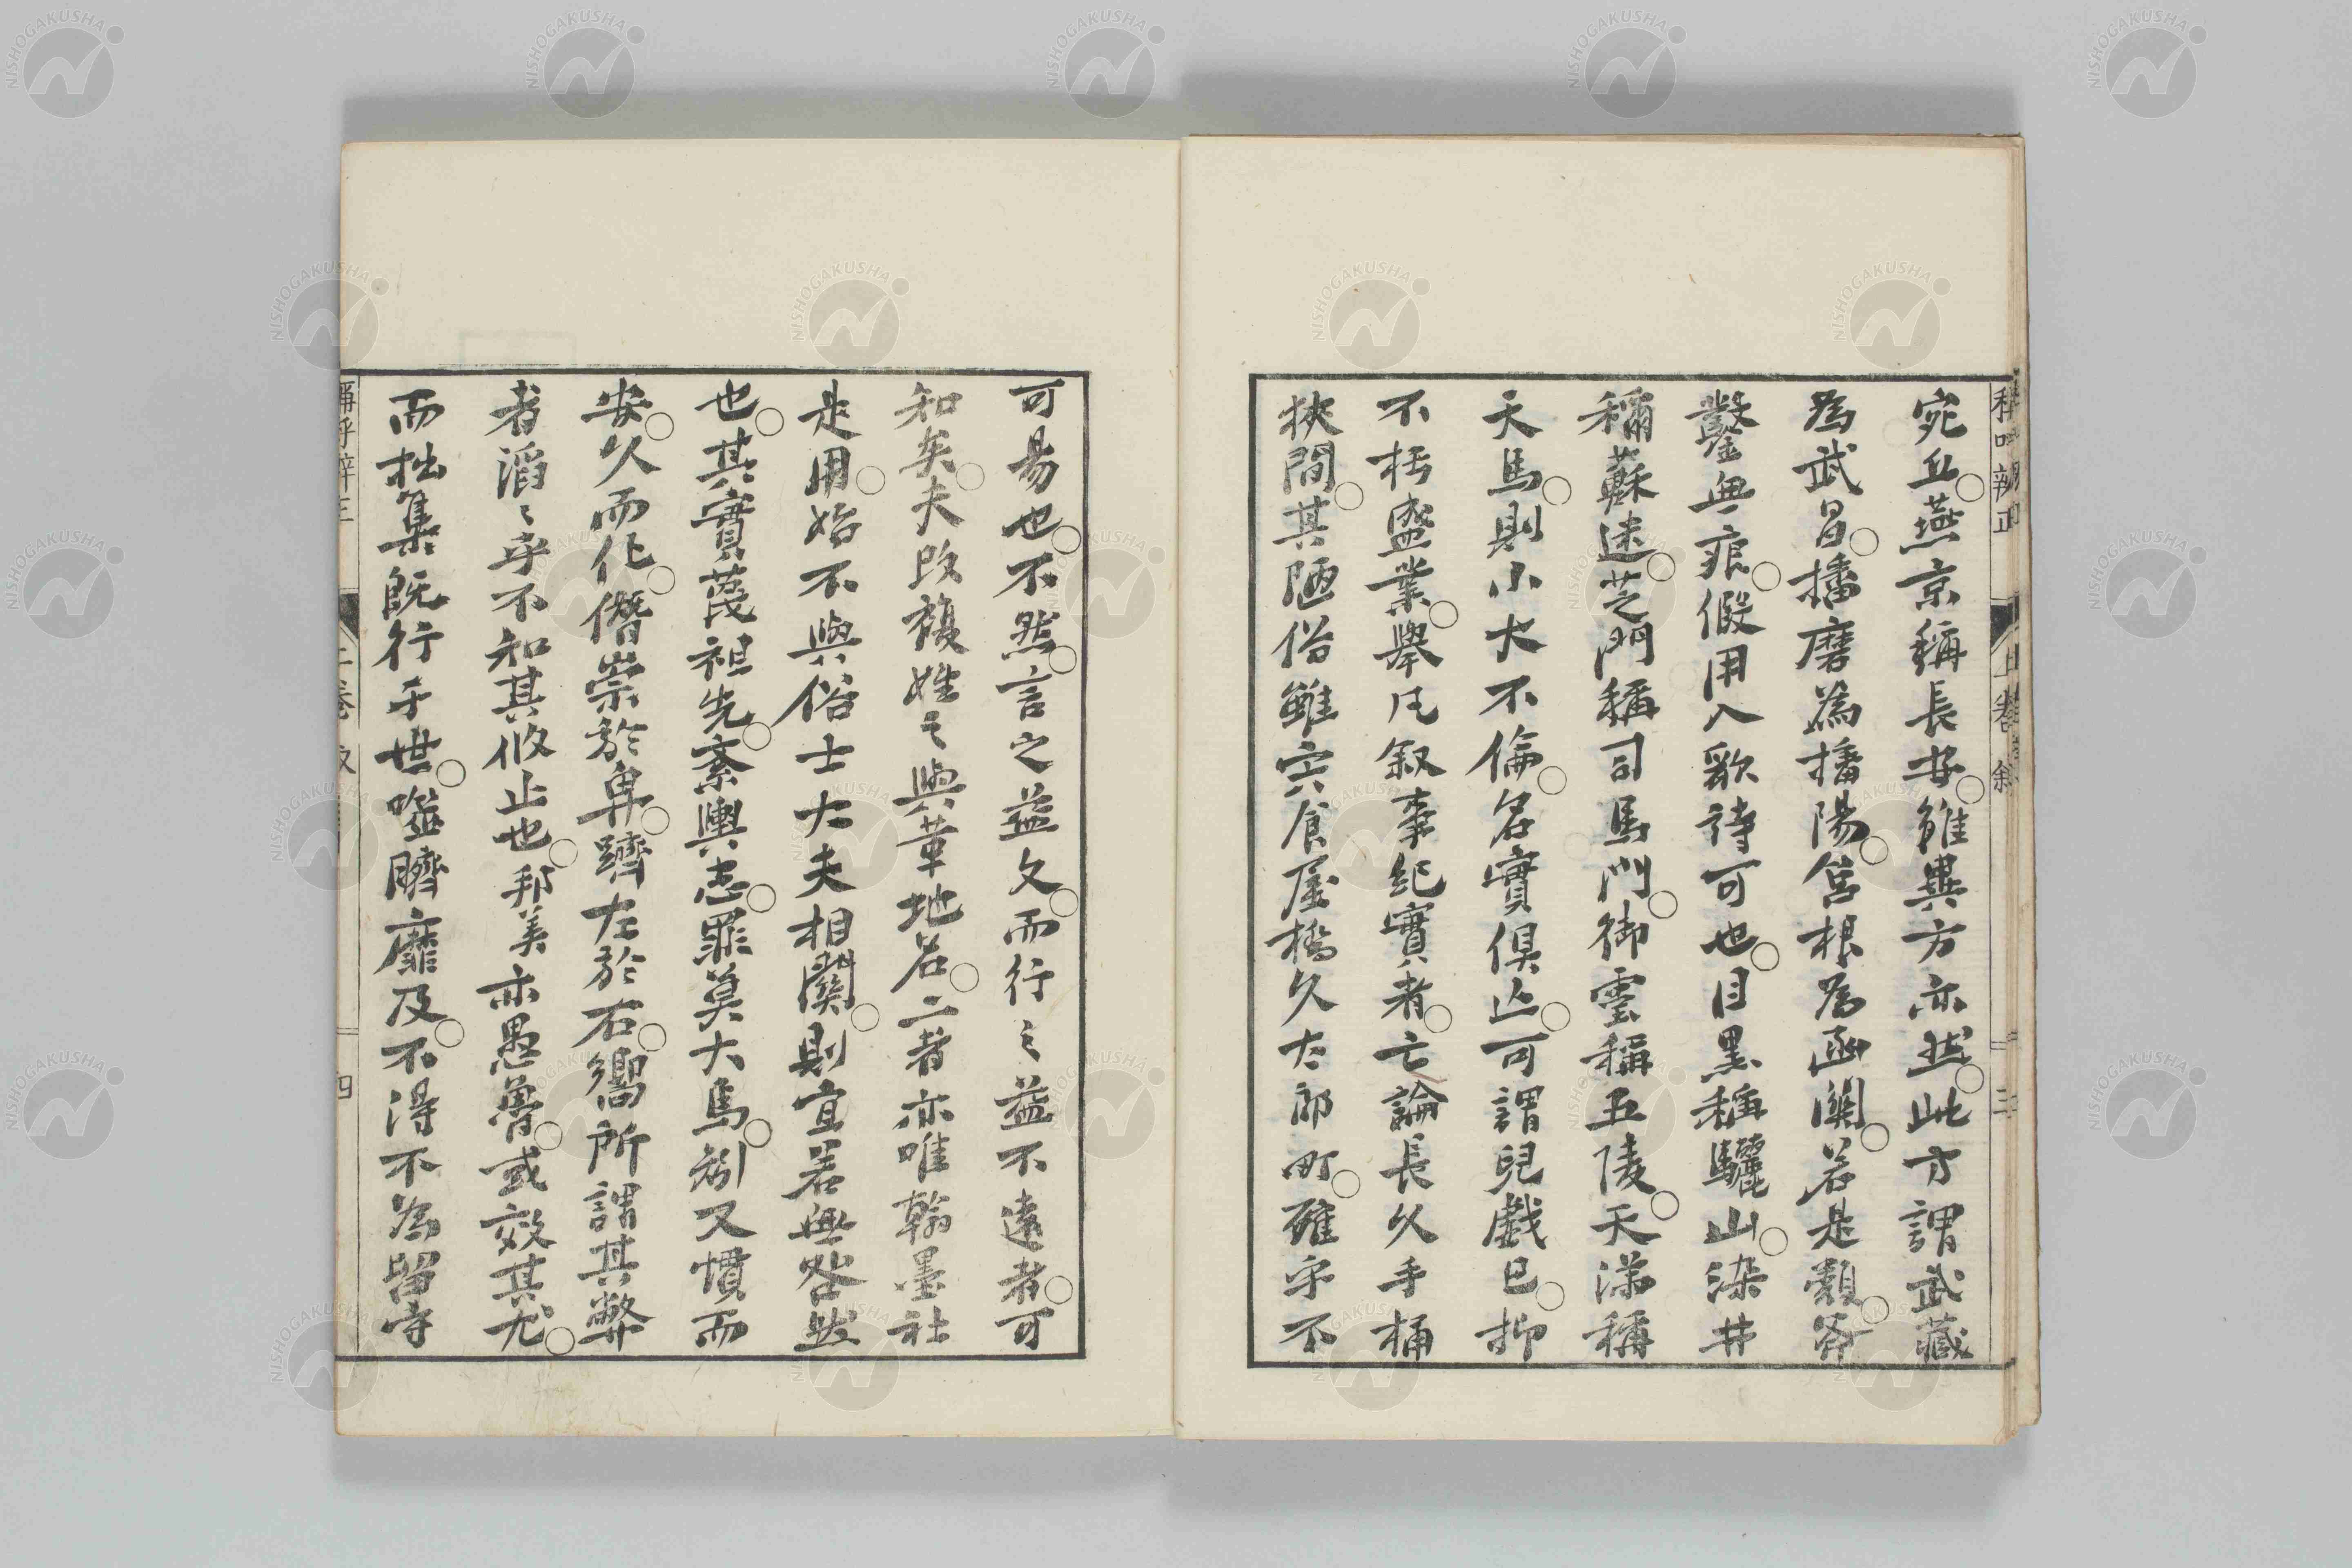 稱呼辨正 上卷 叙 三
宛丘○燕京稱長安○雖異方亦然○此方謂武藏
為武昌○播磨為播陽○筥根為函關○若是類斧
鑿無痕○假用入歌詩可也○目黒稱驪山○染井
稱蘇迷○芝門稱司馬門○御雲稱五陵○天滿稱
天馬○則小大不倫○名實俱亡○可謂兒戲已○抑
不朽盛業○舉凡叙事紀實者○亡論長久手桶
狹間○其陋俗雖宍倉屋橋久太郎町○確守不
可易也○不然○言之益文○而行之益不遠者○可
知矣○夫改複姓之與革地名○二者亦唯翰墨社
是用○始不與俗士大夫相關○則宜若無咎然
也○其實蔑祖先○紊輿志○罪莫大焉○矧又慣而
安○久而化○僭崇於卑○躋左於右○嚮所謂其弊
者滔〻乎不知其攸止也○邦美亦愚魯○或效其尤○
而拙集既行于世○噬臍靡及○不得不為留守
稱呼辨正 上卷 叙 四